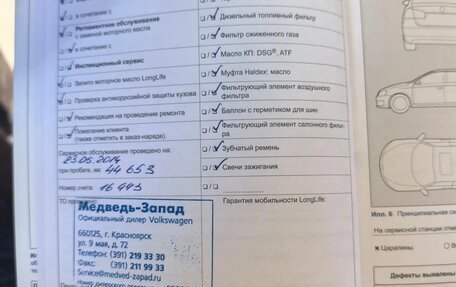 в сочетании с
Регламентное обслуживание
с заменой моторного масла
в сочетании с
Инспекционный сервис
Залито моторное масло LongLife
Проверка антикоррозийной защиты кузова
Рекомендация на проведение ремонта
Пожелание клиента
(также отметить в заказ-наряде).
Сервисное обслуживание проведено на:
23.06.2014
при пробеге, км 44 653
Номер счета 16 943
TO проведено
Медведь-Запад
Официальный дилер Volkswagen
660125, г. Красноярск
ул. 9 мая, д. 72
Телефон: (391) 219 33 30
Факс: (391) 211 99 33
Service@medved-zapad.ru
Номер дилерского
Дизельный топливный фильтр
Фильтр сжиженного газа
Масло КП: DSG®, ATF
Муфта Haldex: масло
Фильтрующий элемент воздушного
фильтра
Баллон с герметиком для шин
Фильтрующий элемент салонного фильт-
ра
Зубчатый ремень
Свечи зажигания
Гарантия мобильности LongLife:
Илл. 6 Принципиальная
На сервисной станции
× Царапины
Дефекты выявлены